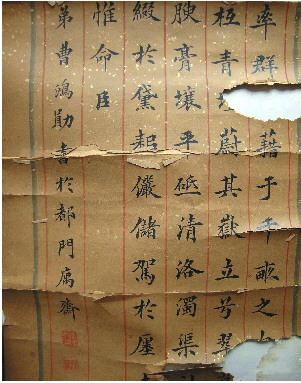 率群藉于千畝之
枑青蔚其嶽立兮翠
腴膏壤平砥清洛濁渠
綴於黛耜儼儲駕於廛
惟命臣
弟曹鴻勛書於都門庽齋